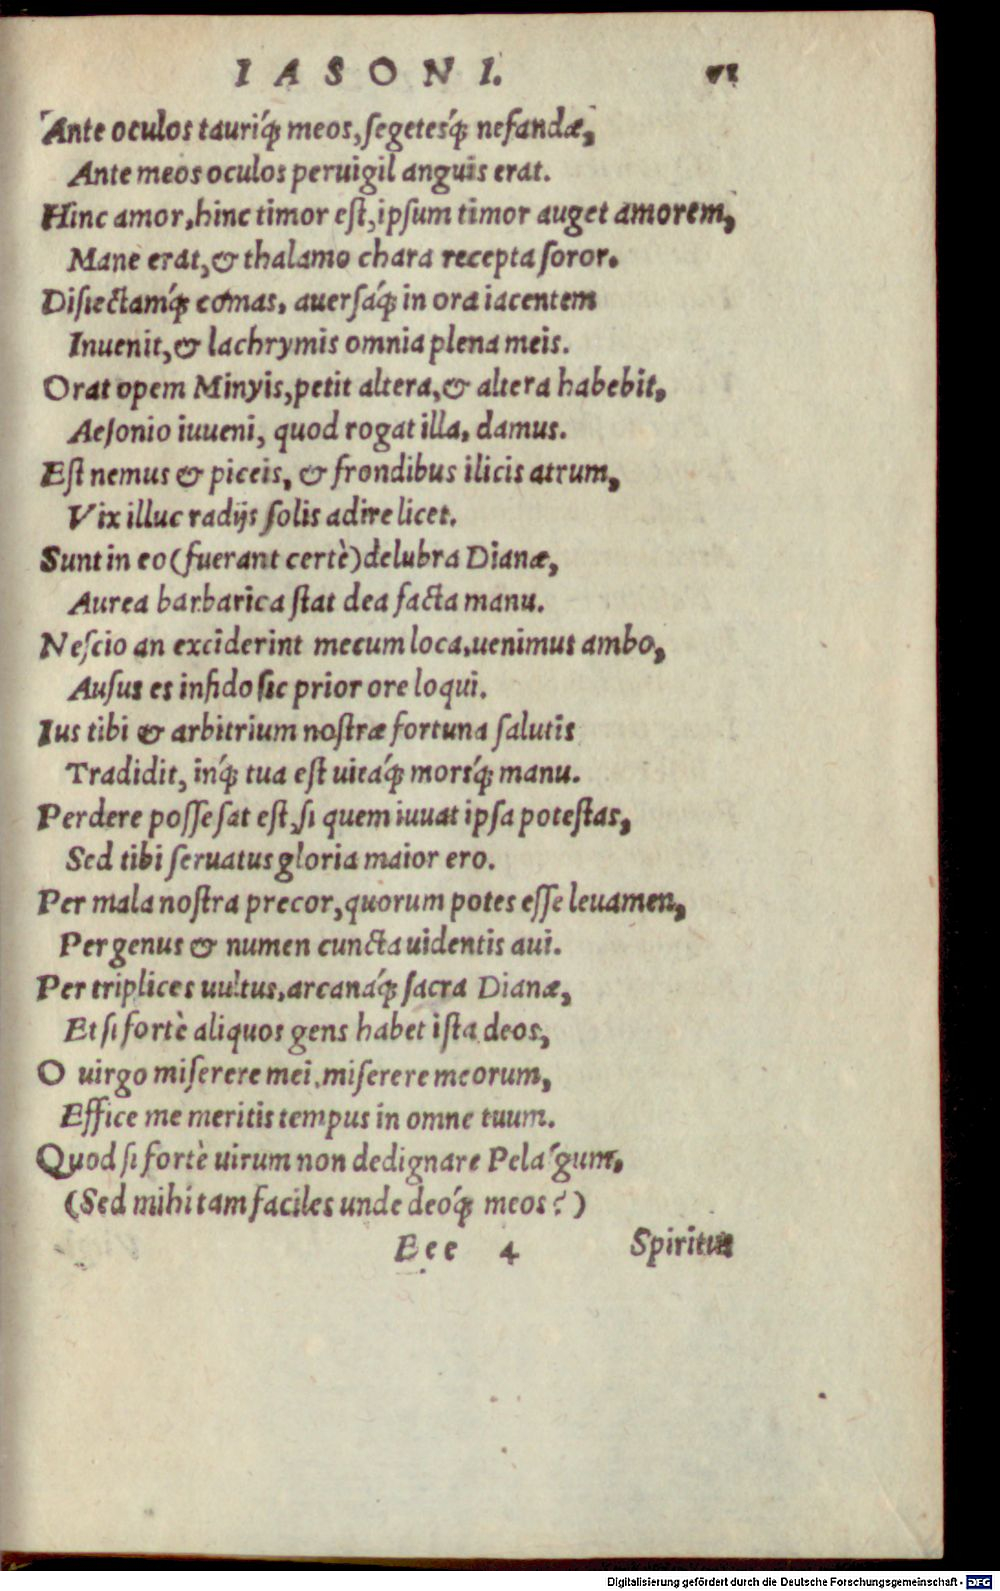 IASONI. VI
Ante oculos tauriq́; meos, ſegetesq́; nefandæ,
Ante meos oculos peruigil anguis erat.
Hinc amor, hinc timor eſt, ipſum timor auget amorem,
Mane erat, & thalamo chara recepta ſoror.
Diſiectamq́; comas, auerſáq́; in ora iacentem
Inuenit, & lachrymis omnia plena meis.
Orat opem Minyis, petit altera, & altera habebit,
Aeſonio iuueni, quod rogat illa, damus.
Eſt nemus & piceis, & frondibus ilicis atrum,
Vix illuc radijs ſolis adire licet.
Sunt in eo (fuerant certè) delubra Dianæ,
Aurea barbarica ſtat dea facta manu.
Neſcio an exciderint mecum loca, uenimus ambo,
Auſus es infido ſic prior ore loqui.
Ius tibi & arbitrium noſtræ fortuna ſalutis
Tradidit, inq́; tua eſt uitáq́; morsq́; manu.
Perdere poſſe ſat eſt, ſi quem iuuat ipſa poteſtas,
Sed tibi ſeruatus gloria maior ero.
Per mala noſtra precor, quorum potes eſſe leuamen,
Per genus & numen cuncta uidentis aui.
Per triplices uultus, arcanáq́; ſacra Dianæ,
Et ſi fortè aliquos gens habet iſta deos,
O uirgo miſerere mei, miſerere meorum,
Effice me meritis tempus in omne tuum.
Quod ſi fortè uirum non dedignare Pelaſgum,
(Sed mihi tam faciles unde deoq́; meos?)
Eee 4 Spiritus
Digitalisierung gefördert durch die Deutsche Forschungsgemeinschaft - DFG